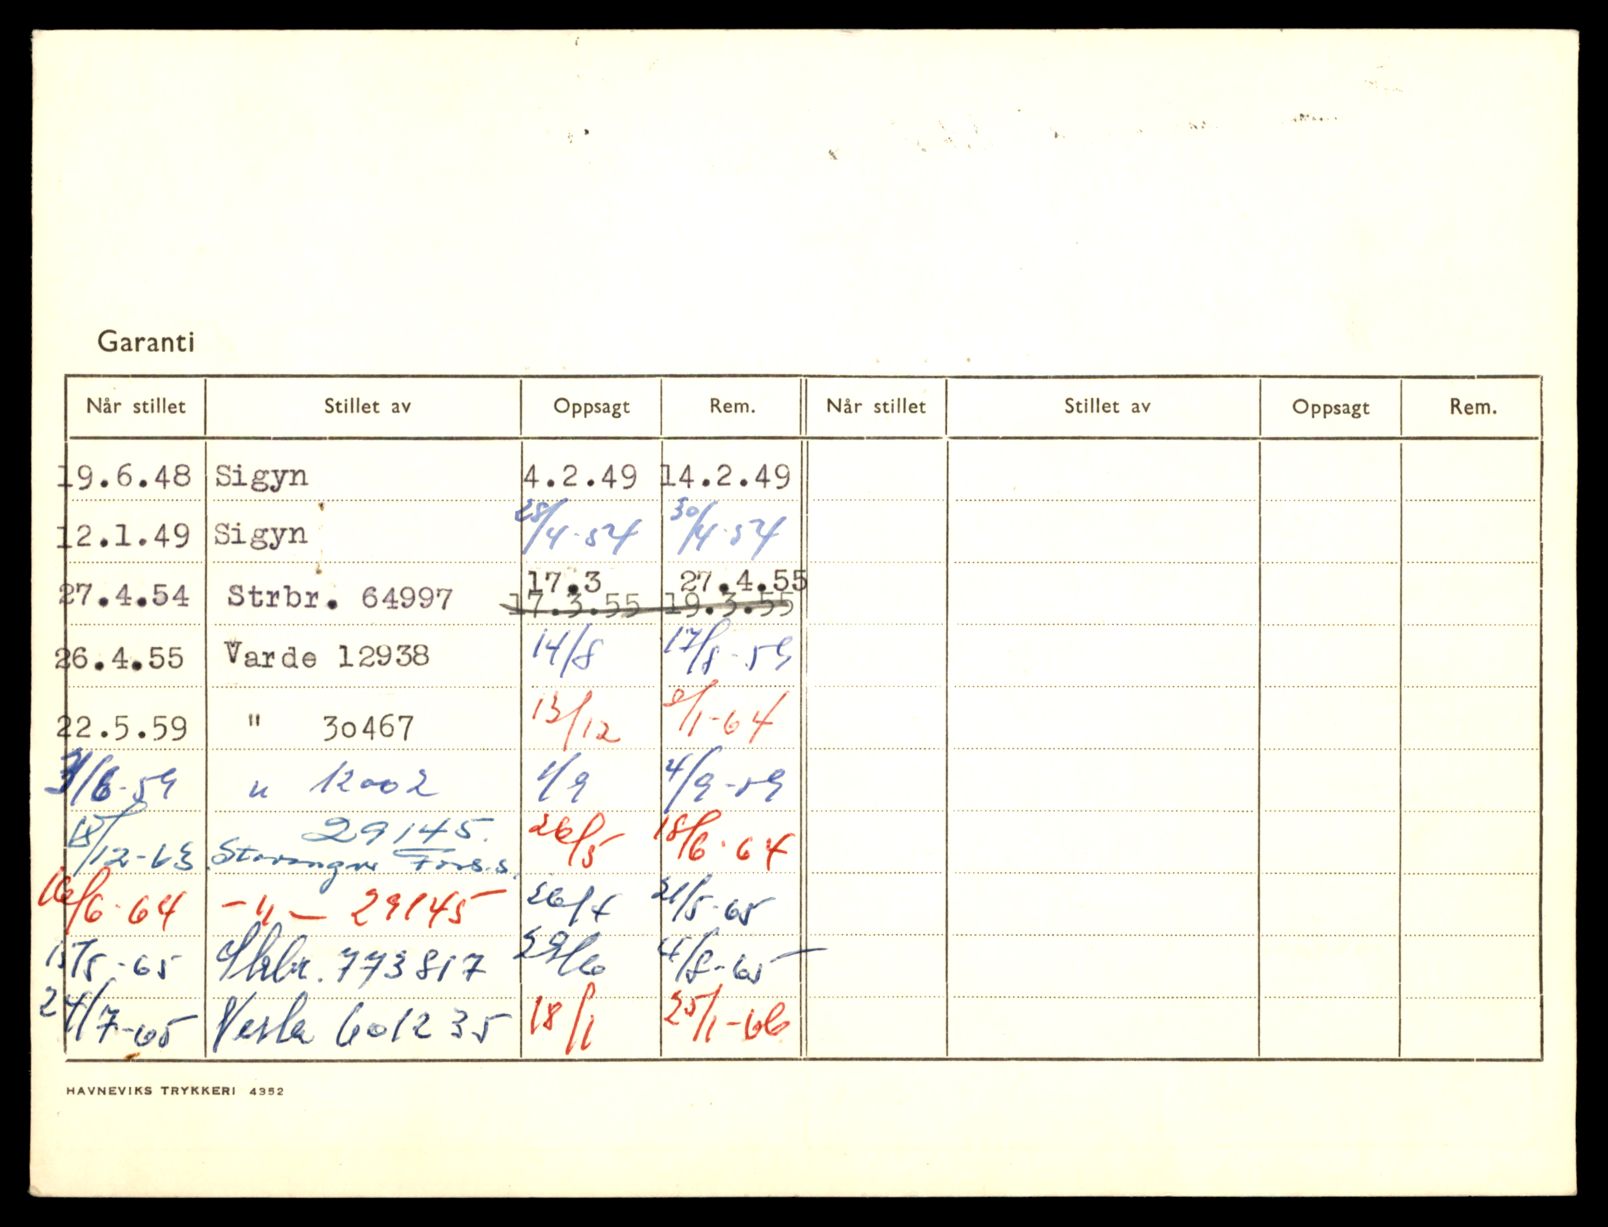 Garanti
Når stillet Stillet av Oppsagt Rem. Når stillet Stillet av Oppsagt Rem.
19.6.48 Sigyn 4.2.49 14.2.49
12.1.49 Sigyn 28/4-54 30/4-54
27.4.54 Strbr. 64997 17.3 27.4.55
17.3.55 19.3.55
26.4.55 Varde 12938 14/8 17/8-59
22.5.59 " 30467 13/12 8/1-64
/6-59 " 12002 1/9 4/9-59
29145.
18/12-63 Stavanger Fors.s. 26/5 18/6-64
16/6-64 -"- 29145 26/4 21/5-65
15/5-65 Skbr. 773817 29/6 4/8-65
24/7-65 Vesla 601235 18/1 25/1-66
HAVNEVIKS TRYKKERI 4352